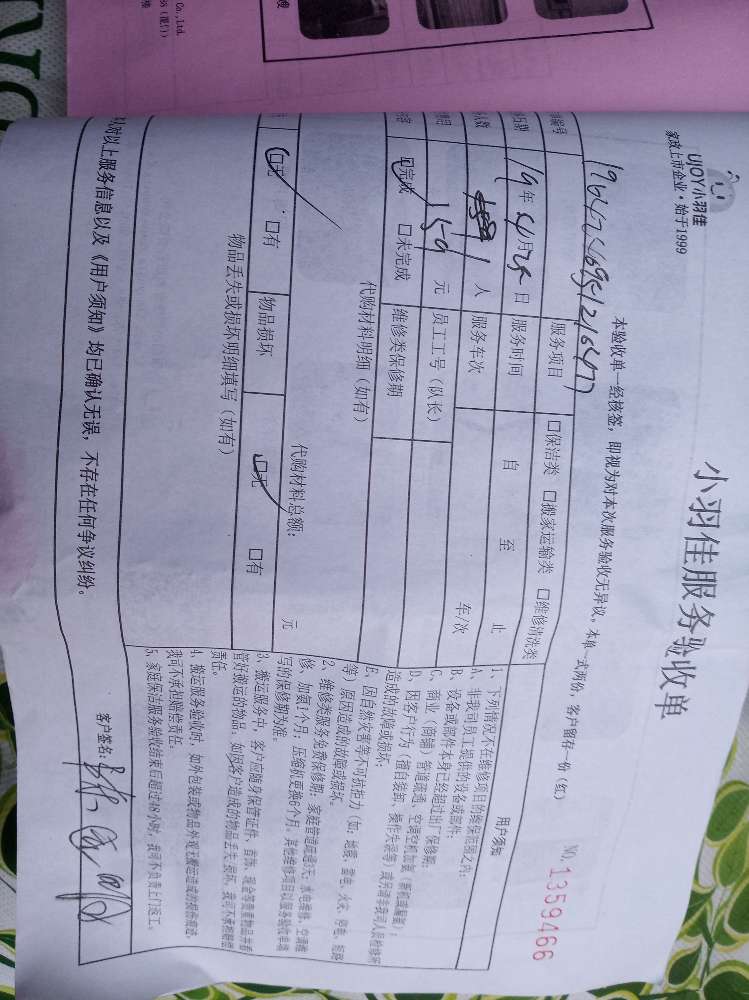 Co.,Ltd
UJOY小羽佳
家政上市企业·始于1999
小羽佳服务验收单
本验收单一经核签，即视为对本次服务验收无异议。本单一式两份，客户留存一份（红）
NO. 1359466
服务项目 □保洁类 □搬家运输类 □维修清洗类
19年4月25日 服务时间 自 至 止
1人 服务车次 车/次
159元 员工工号（队长）
☑完成 □未完成 维修类保修期
代购材料明细（如有）
代购材料总额： 元
□无 □有 物品损坏 □无 □有
物品丢失或损坏明细填写（如有）
用户须知
1、下列情况不在维修项目的维保范围之内：
A、非我司员工提供的设备或部件；
B、设备或部件本身已经超过出厂保修期；
C、商业（商铺）管道疏通、空调空机加氨（新机或漏氨）；
D、因客户行为（擅自装卸、操作失误等）或另请非我司人员检修所
造成的故障或损坏；
E、因自然灾害等不可抗拒力（如：地震、雷电、火灾、停电、短路
等）原因造成的故障或损坏。
2、维修类服务免费保修期：家庭管道疏通3天；水电维修、空调维
修、加氨1个月；压缩机更换6个月。其他维修项目以服务验收单填
写的保修期为准。
3、搬运服务中，客户应随身保管证件、首饰、现金等贵重物品并看
管好搬运的物品，如因客户造成的物品丢失、损坏，我司不承担赔偿
责任。
4、搬运服务验收时，如外包装或物品外观无搬运造成的损伤痕迹，
我司不承担赔偿责任。
5、家庭保洁服务验收结束后超过48小时，我司不负责上门返工。
以对以上服务信息以及《用户须知》均已确认无误，不存在任何争议纠纷。
客户签名：